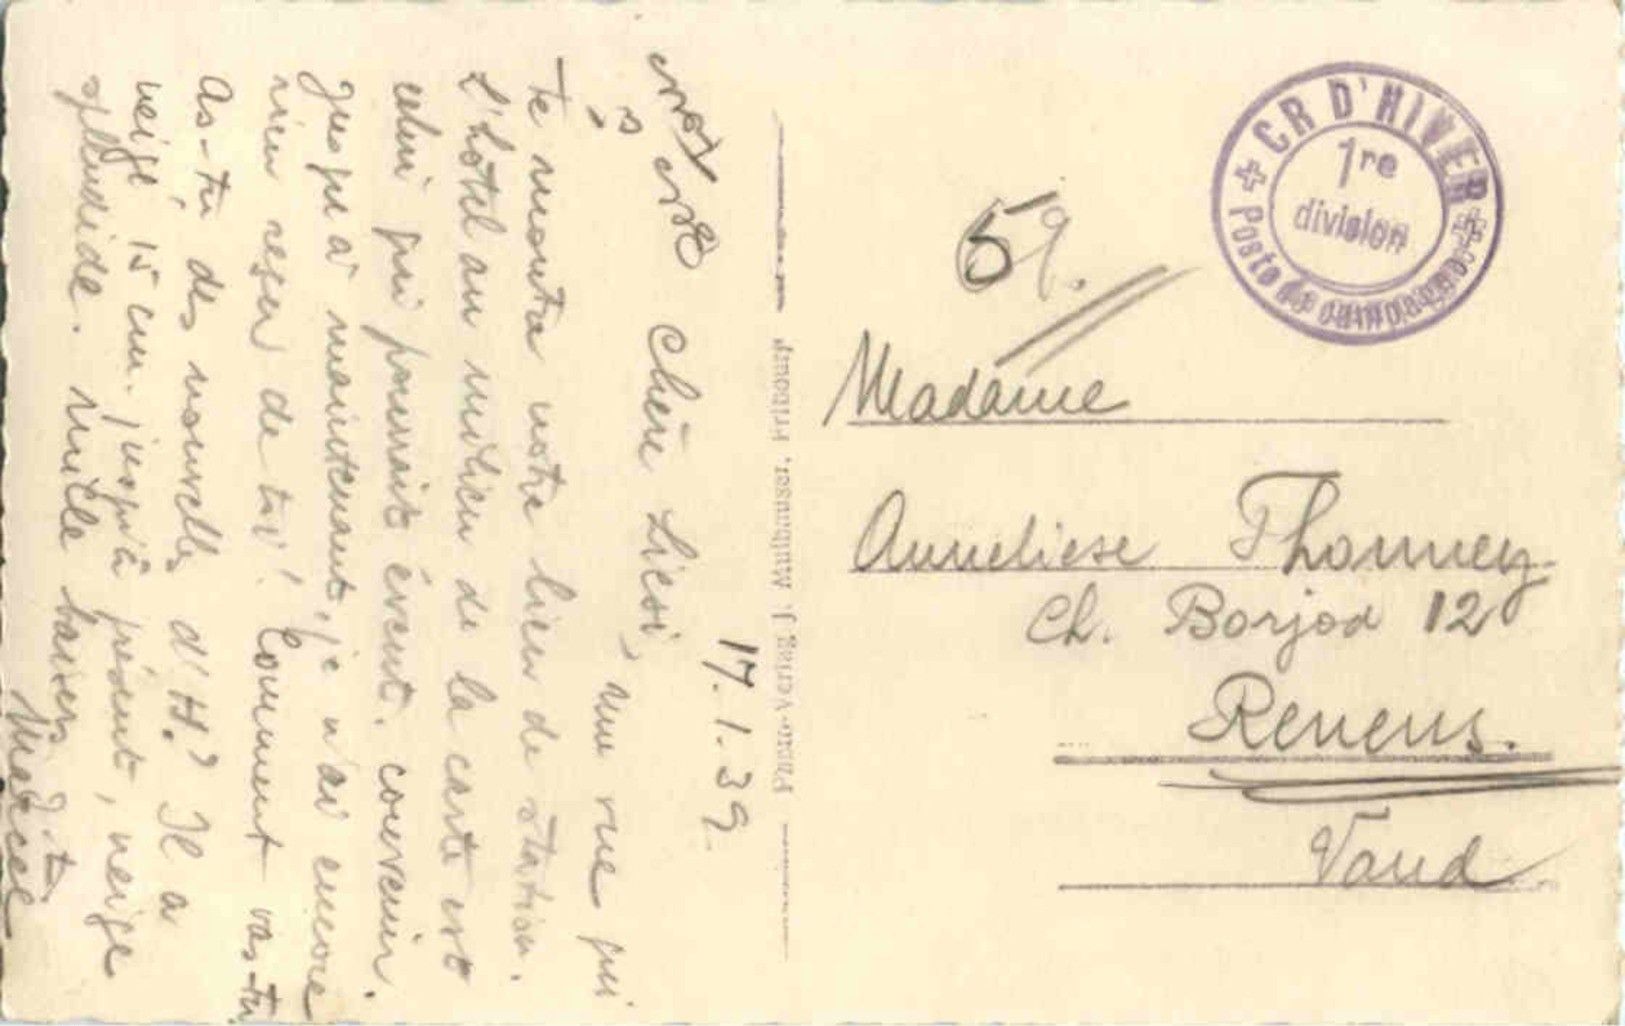 17.1.39
Chère Liesi,
une vue qui
te montra notre lieu de station.
L'hôtel au milieu de la carte est
celui qui pourrait évent. convenir.
Jusqu'à maintenant, je n'ai encore
rien reçu de toi! Comment vas-tu,
as-tu des nouvelles d'H.? Il a
neigé 15 cm. jusqu'à présent, neige
splendide. Mille baisers
Marcel
CR D'HIVER
1re
division
Poste de campagne
59.
Madame
Anneliese Thonney
Ch. Borjod 12
Renens.
Vaud
Photo-Verlag J. Wullhauser,